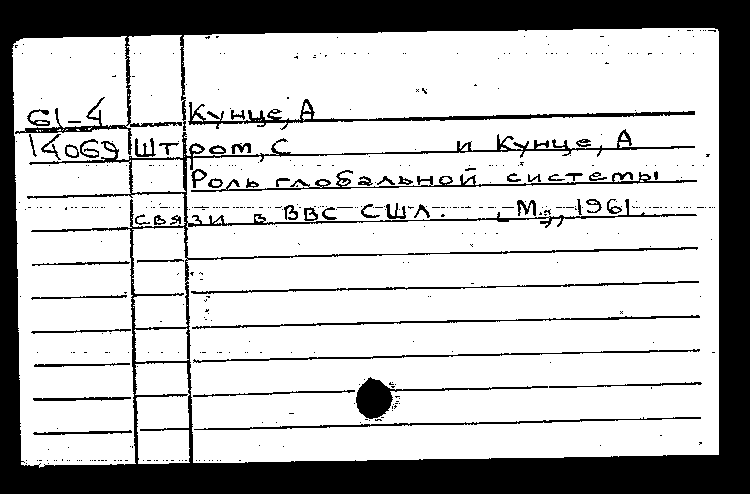 61-4 Кунце, А
14069 Штром, С и Кунце, А
Роль глобальной системы
связи в ВВС США. [М.], 1961.